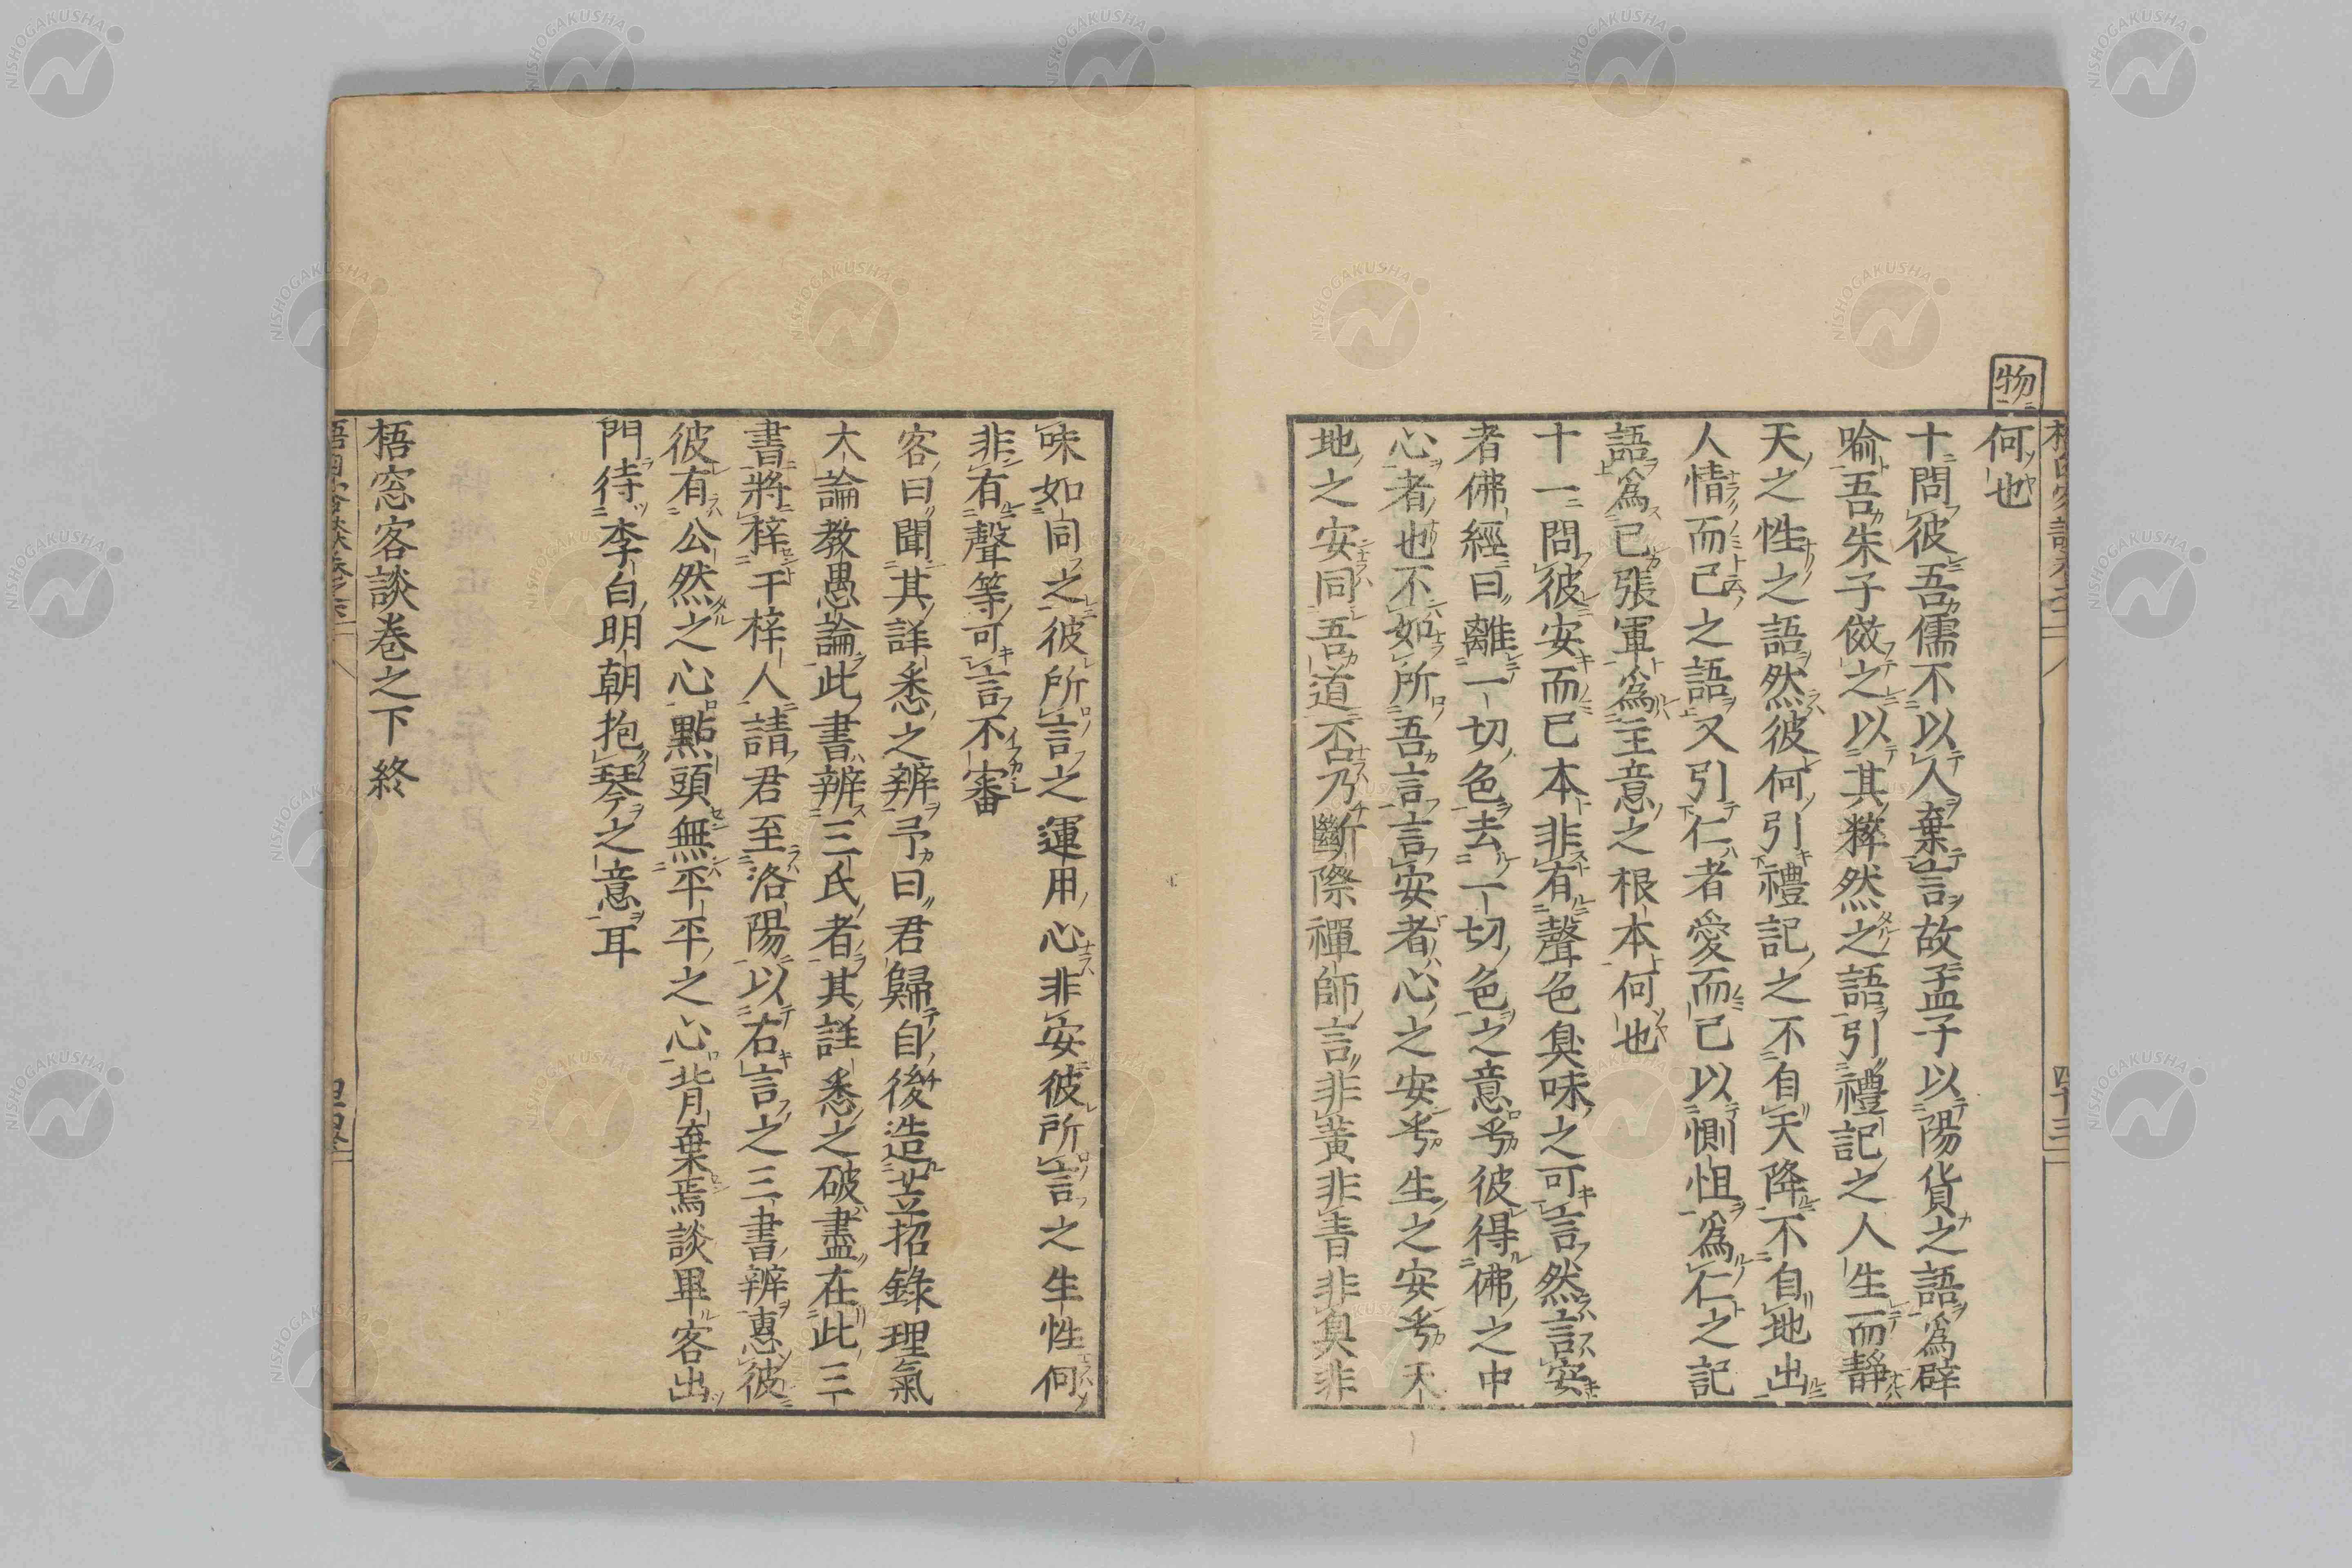 物
何也
十問彼吾儒不以人棄言故孟子以陽貨之語爲辟
喻吾朱子傚之以其粹然之語引禮記之人生而靜
天之性之語然彼何引禮記之不自天降不自地出
人情而已之語又引仁者愛而已以惻怛爲仁之記
語爲已張軍爲主意之根本何也
十一問彼安而已本非有聲色臭味之可言然言安
者佛經曰離一切色去一切色之意乎彼得佛之中
心者也不如所吾言言安者心之安乎生之安乎天
地之安同吾道否乃斷際禪師言非黃非青非臭非
味如同之彼所言之運用心非安彼所言之生性何
非有聲等可言不審
客曰聞其詳悉之辨予曰君歸自後造並招錄理氣
大論教愚論此書辨三氏者其詳悉之破盡在此三
書將梓干梓人請君至洛陽以右言之三書辨惠彼
彼有公然之心點頭無平平之心背棄焉談畢客出
門待李白明朝抱琴之意耳
梧窓客談卷之下終
NISHOGAKUSHA